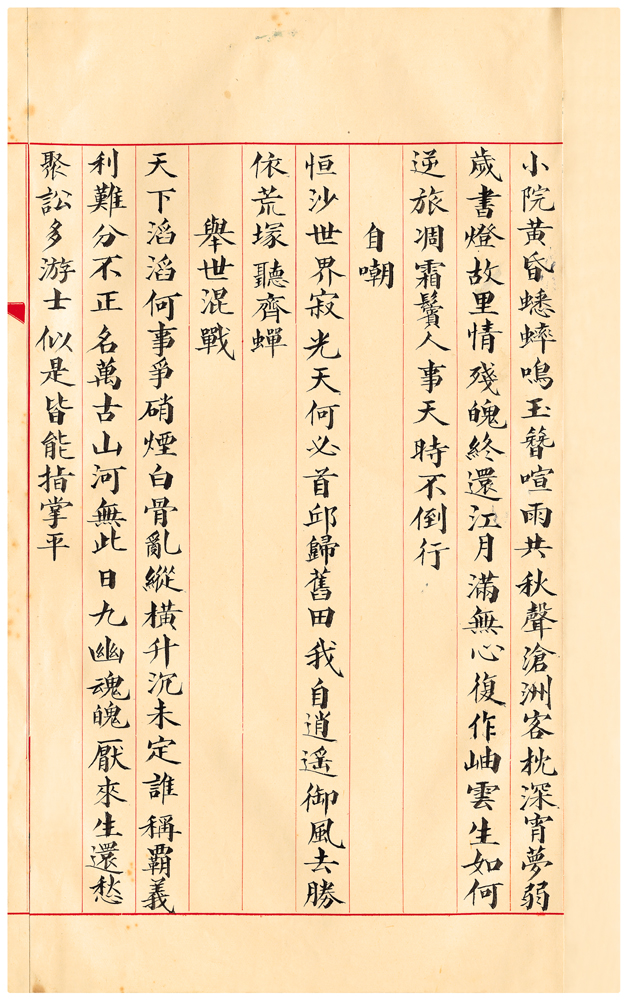 小院黃昏蟋蟀鳴玉簪喧雨共秋聲滄洲客枕深宵夢弱
歲書燈故里情殘魄終還江月滿無心復作岫雲生如何
逆旅凋霜鬢人事天時不倒行
自嘲
恒沙世界寂光天何必首邱歸舊田我自逍遙御風去勝
依荒塚聽齊蟬
舉世混戰
天下滔滔何事爭硝煙白骨亂縱橫升沉未定誰稱霸義
利難分不正名萬古山河無此日九幽魂魄厭來生還愁
聚訟多游士似是皆能指掌平